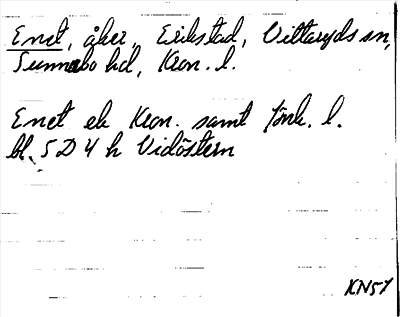 Enet, åker, Erikstad, Vittaryds sn,
Sunnerbo hd, Kron. l.
Enet ek Kron. samt Jönk. l.
bl. 5D 4h Vidöstern
KN57